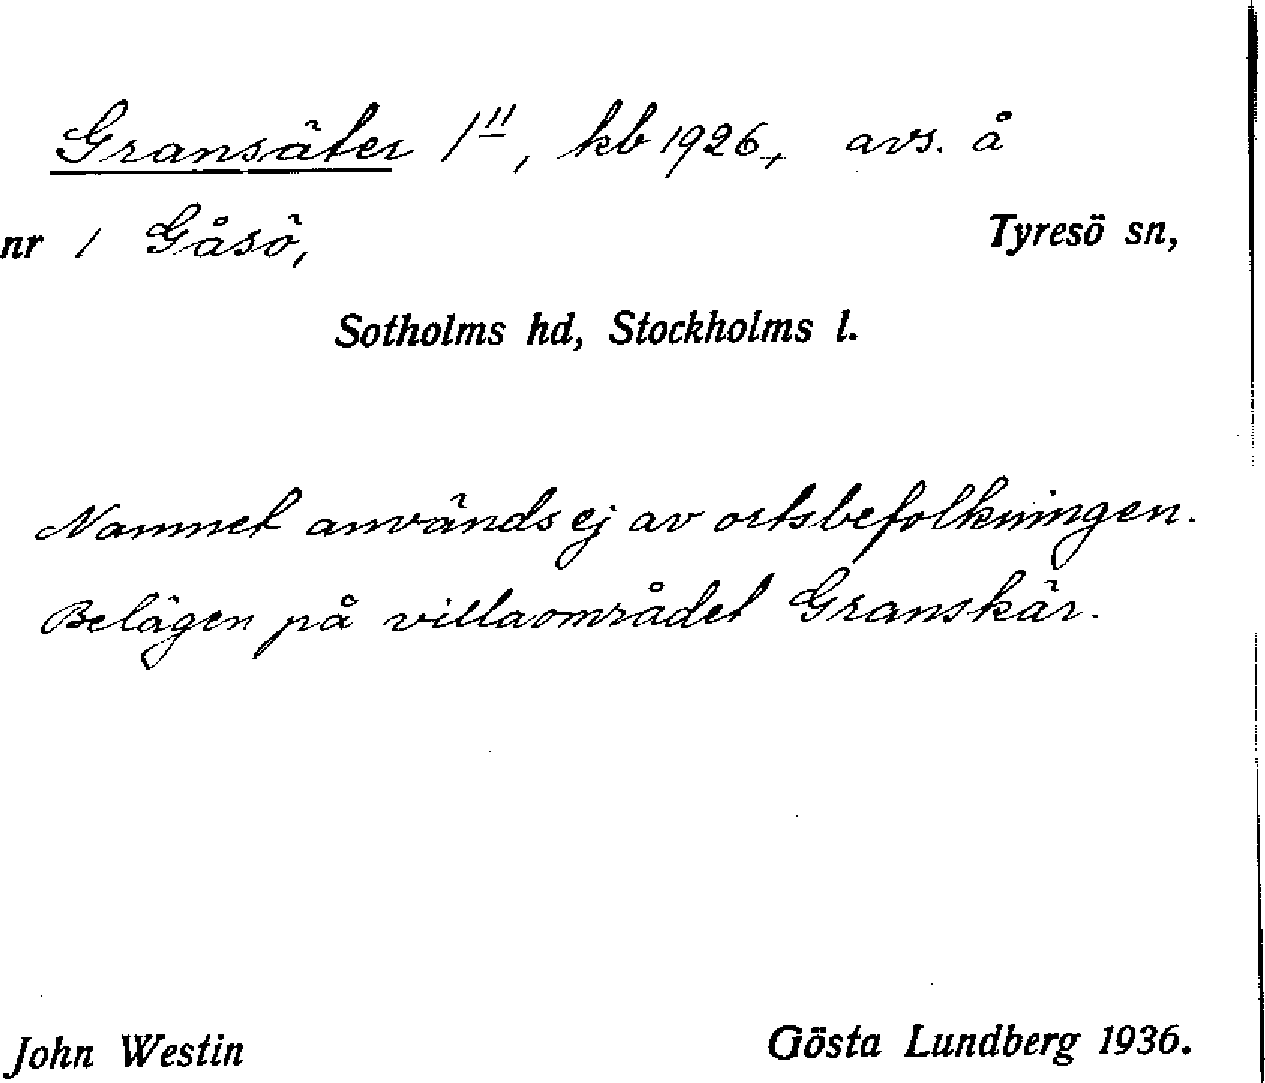 Gransäter 1¹¹, kb 1926, avs. å
nr 1 Gåsö, Tyresö sn,
Sotholms hd, Stockholms l.
Namnet används ej av ortsbefolkningen.
Belägen på villaområdet Granskär.
John Westin Gösta Lundberg 1936.